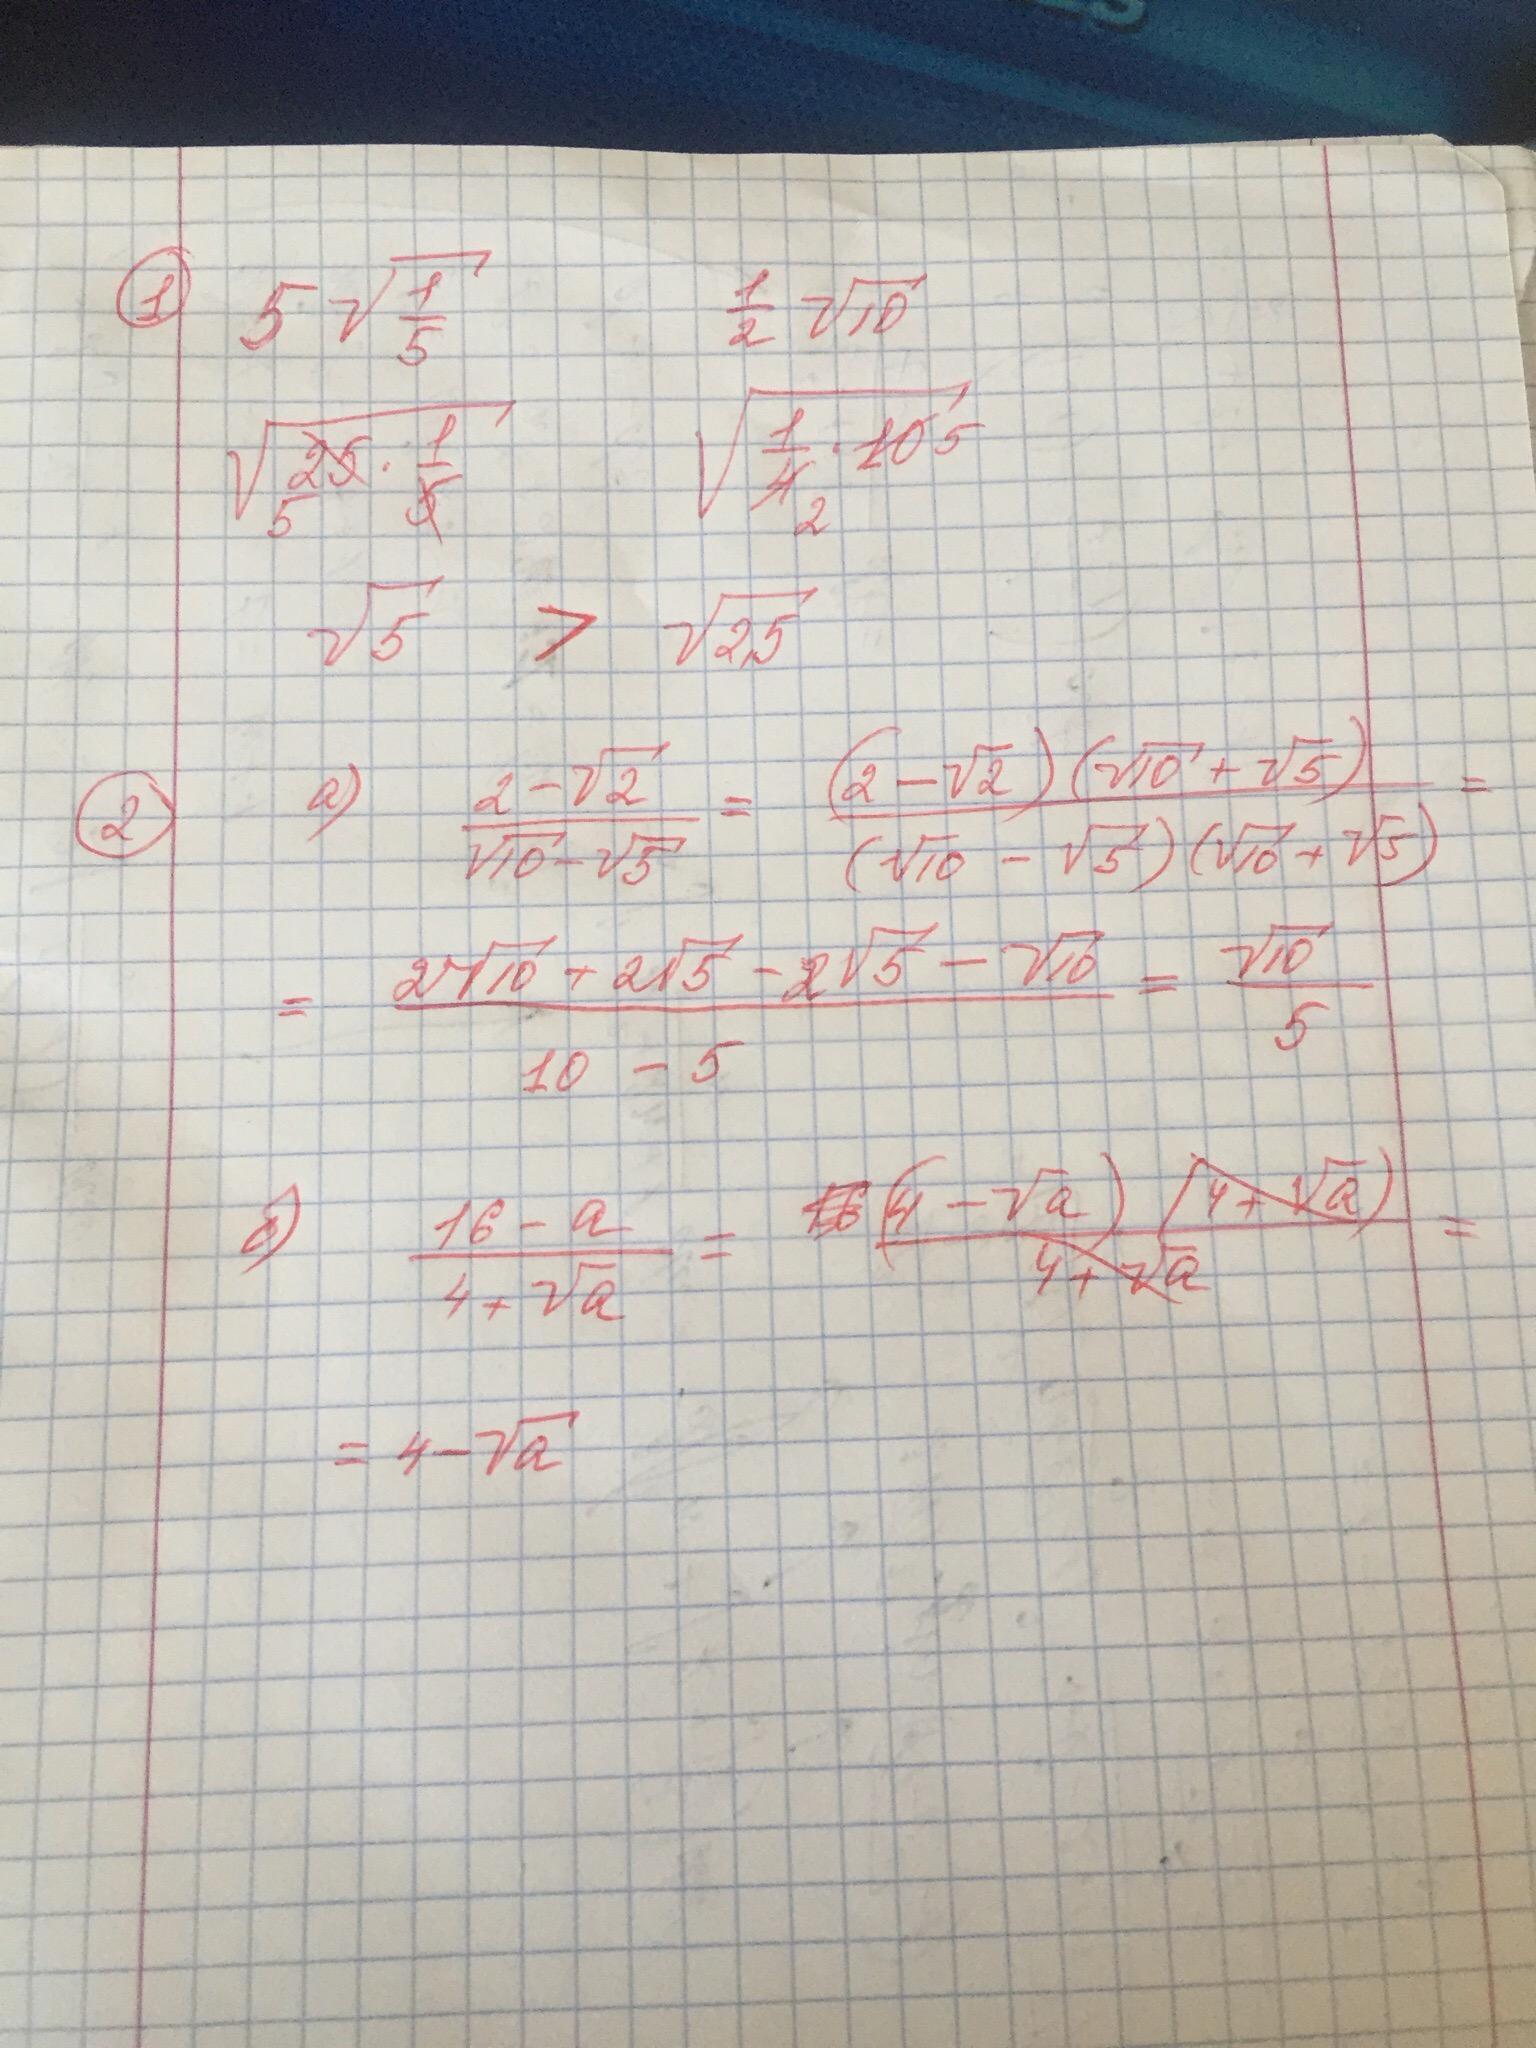 ① 5√(1/5)   1/2 √10
√(25 · 1/5) 5   √(1/4 · 10) 5 2
√5 > √2,5
② а) (2 − √2)/(√10 − √5) = ((2 − √2)(√10 + √5))/((√10 − √5)(√10 + √5)) =
= (2√10 + 2√5 − 2√5 − √10)/(10 − 5) = √10/5
б) (16 − a)/(4 + √a) = ((4 − √a)(4 + √a))/(4 + √a) =
= 4 − √a